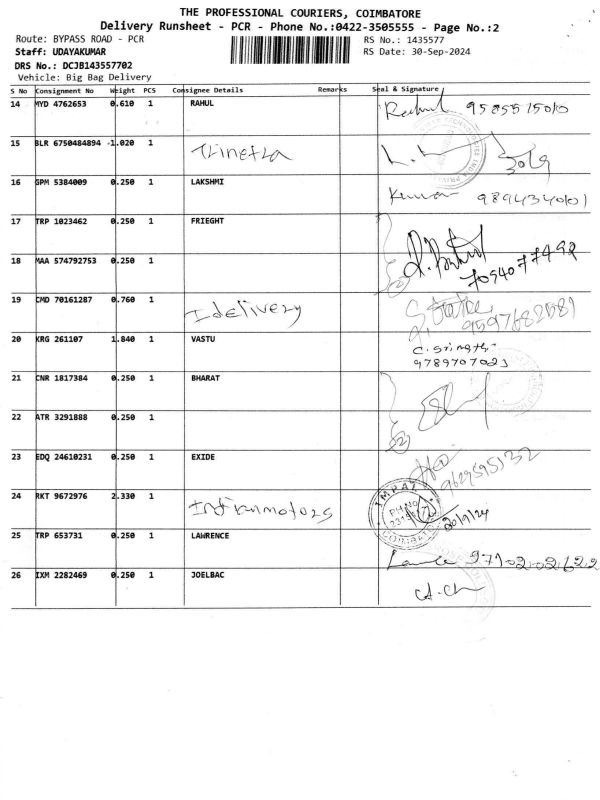 THE PROFESSIONAL COURIERS, COIMBATORE
Delivery Runsheet - PCR - Phone No.:0422-3505555 - Page No.:2
Route: BYPASS ROAD - PCR RS No.: 1435577
Staff: UDAYAKUMAR RS Date: 30-Sep-2024
DRS No.: DCJB143557702
Vehicle: Big Bag Delivery
S No Consignment No Weight PCS Consignee Details Remarks Seal & Signature
14 MYD 4762653 0.610 1 RAHUL Rahul 9585515010
15 BLR 6750484894 -1.020 1 Trinetra
16 GPM 5384009 0.250 1 LAKSHMI Kumar 9894340101
17 TRP 1023462 0.250 1 FRIEGHT
18 MAA 574792753 0.250 1 7094077492
19 CMD 70161287 0.760 1 Idelivery 9597682581
20 KRG 261107 1.840 1 VASTU
9789707023
21 CNR 1817384 0.250 1 BHARAT
22 ATR 3291888 0.250 1
23 EDQ 24610231 0.250 1 EXIDE 9629595132
24 RKT 9672976 2.330 1 IMPAL PH.NO 30/9/24
25 TRP 653731 0.250 1 LAWRENCE
26 IXM 2282469 0.250 1 JOELBAC